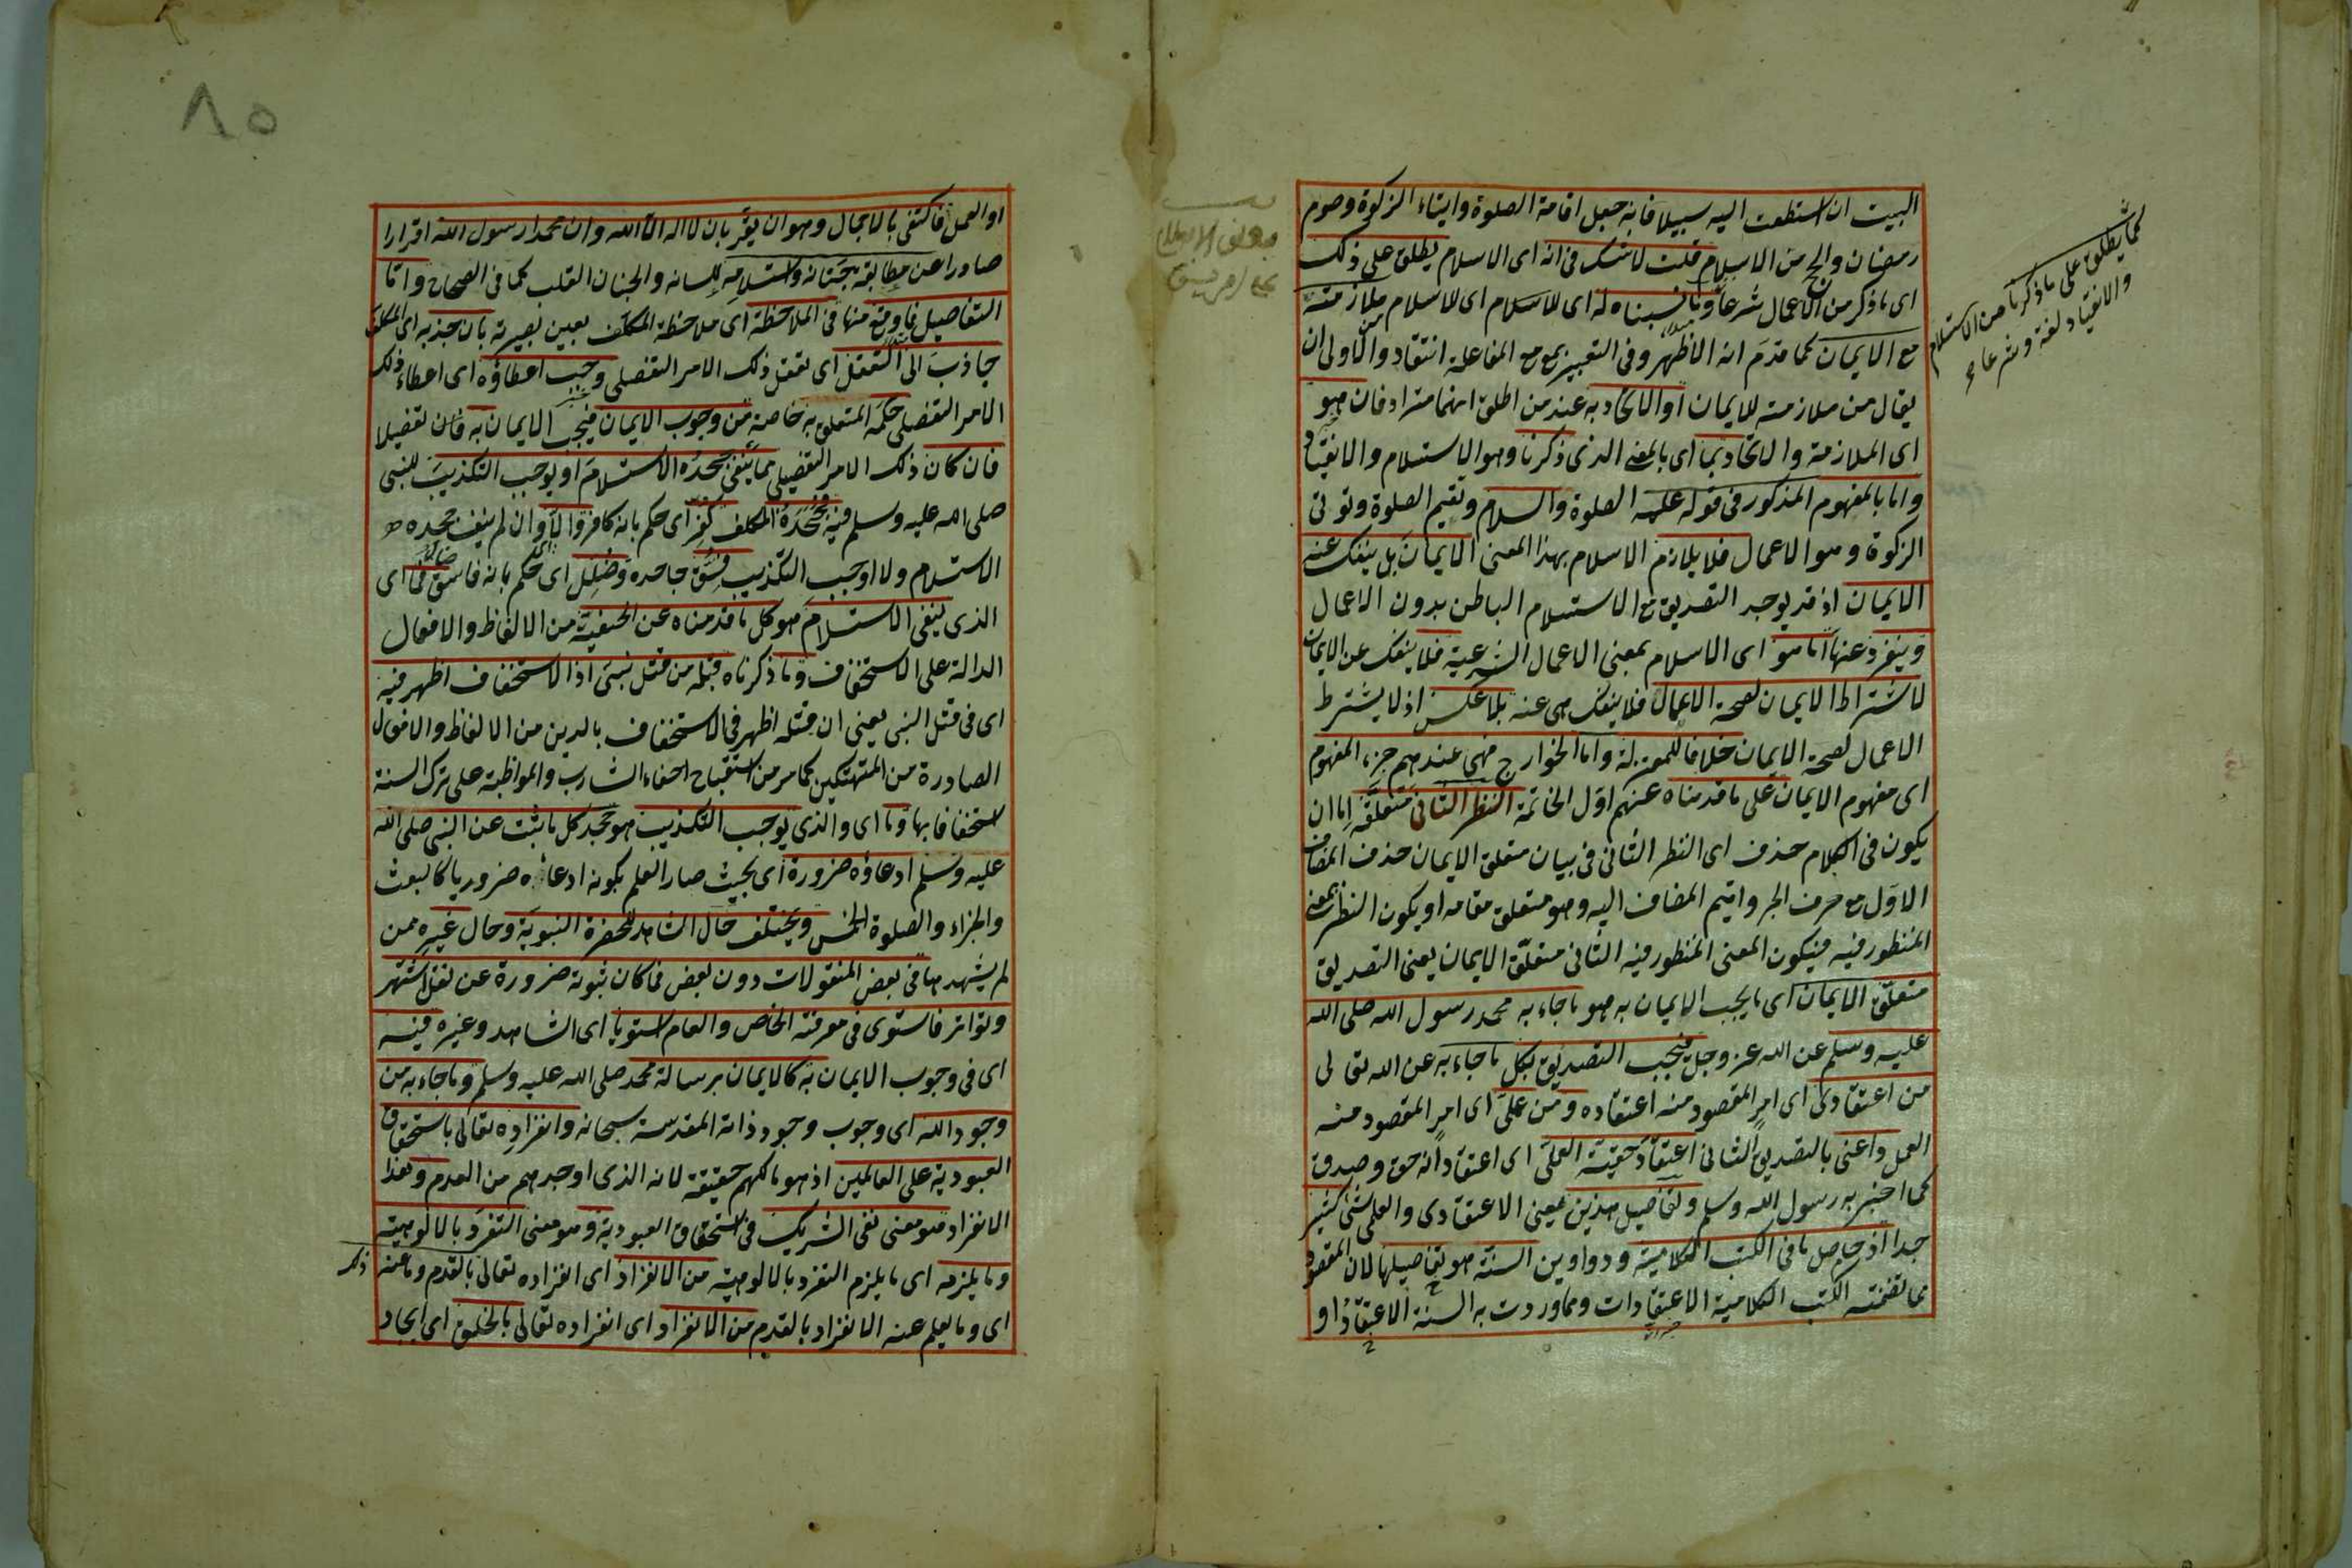 البيت ان استطعت اليه سبيلا فانه جعل اقامة الصلوة وايتاء الزكوة وصوم
رمضان والحج من الاسلام قلت لا شك فى انه اى الاسلام يطلق على ذلك
اى ما ذكر من الاعمال شرعا له اى للاسلام اى للاسلام ملازمته
مع الايمان كما قدم انه الاظهر وفى التعبير بمع مع المفاعلة انتقاد والاولى ان
يقال من ملازمته للايمان او الاتحاد به عند من اطلق انهما مترادفان هو
اى الملازمة والاتحاد اى بالمعنى الذى ذكرنا وهو الاستسلام والانقياد
واما بالمفهوم المذكور فى قوله عليه الصلوة والسلام وتقيم الصلوة وتوتى
الزكوة وهو الاعمال فلا يلازم الاسلام بهذا المعنى الايمان بل ينفك عنه
الايمان اذ قد يوجد التصديق مع الاستسلام الباطن بدون الاعمال
وينفرد عنها اما هو اى الاسلام بمعنى الاعمال الشرعية فلا ينفك عن الايمان
لاشتراط الايمان لصحة الاعمال فلا ينفك هى عنه بلا عكس اذ لا يشترط
الاعمال لصحة الايمان خلافا للمعتزلة واما الخوارج فهى عندهم جزء المفهوم
اى مفهوم الايمان على ما قدمناه عنهم اول الخاتمة النظر الثانى متعلقه اما ان
يكون فى الكلام حذف اى النظر الثانى فى بيان متعلق الايمان حذف المضاف
الاول مع حرف الجر واقيم المضاف اليه وهو متعلق مقامه او يكون النظر بمعنى
المنظور فيه فيكون المعنى المنظور فيه الثانى متعلق الايمان يعنى التصديق
متعلق الايمان اى ما يجب الايمان به هو ما جاء به محمد رسول الله صلى الله
عليه وسلم عن الله عز وجل فيجب التصديق بكل ما جاء به عن الله تعالى
من اعتقادى اى امر المقصود منه اعتقاده ومن عملى اى امر المقصود منه
العمل واعنى بالتصديق الثانى اعتقاد حقية العملى اى اعتقاد انه حق وصدق
كما اخبر به رسول الله وسلم وتفاصيل هذين يعنى الاعتقادى والعملى شئ كثير
جدا اذ حاصل ما فى الكتب الكلامية ودواوين السنة هو تفاصيلها لان المقصود
مما تضمنته الكتب الكلامية الاعتقادات ومما وردت به السنة الاعتقاد او
كما يطلق على ما ذكرنا من الاستسلام
والانقياد لغة وشرعا
او العمل فاكتفى بالاجمال وهو ان يقر بان لا اله الا الله وان محمدا رسول الله اقرارا
صادرا عن مطابقة جنانه واستسلامه للسانه والجنان القلب كما فى الصحاح واما
التفاصيل فما وقع منها فى الملاحظة اى ملاحظة المكلف بعين بصيرته بان جذبه اى المكلف
جاذب الى التعقل اى تعقل ذلك الامر التفصيلى وجب اعطاؤه اى اعطاء ذلك
الامر التفصيلى حكمه المتعلق به خاصة من وجوب الايمان فيجب الايمان به تفصيلا
فان كان ذلك الامر التفصيلى مما ينفى جحده الاستسلام او يوجب التكذيب للنبى
صلى الله عليه وسلم فجحده المكلف كفر اى حكم بانه كافر والا وان لم ينف جحده
الاستسلام ولا اوجب التكذيب فسق جاحده وضلل اى حكم بانه فاسق اى
الذى ينفى الاستسلام هو كل ما قدمناه عن الحنفية من الالفاظ والافعال
الدالة على الاستخفاف وما ذكرناه قبله من قتل نبى اذ الاستخفاف اظهر فيه
اى فى قتل النبى يعنى ان قتله اظهر فى الاستخفاف بالدين من الالفاظ والافعال
الصادرة من المتهتكين كما مر من استقباح احفاء الشارب والمواظبة على ترك السنة
استخفافا بها وما اى والذى يوجب التكذيب هو جحد كل ما ثبت عن النبى صلى الله
عليه وسلم ادعاؤه ضرورة اى بحيث صار العلم بكونه ادعاه ضروريا كالبعث
والجزاء والصلوة الخمس ويختلف حال الشاهد للحضرة النبوية وحال غيره ممن
لم يشهدها فى بعض المنقولات دون بعض فما كان ثبوته ضرورة عن نقل اشتهر
وتواتر فاستوى فى معرفته الخاص والعام استويا اى الشاهد وغيره فيه
اى فى وجوب الايمان به كالايمان برسالة محمد صلى الله عليه وسلم وما جاء به من
وجود الله اى وجوب وجود ذاته المقدسة سبحانه وانفراده تعالى باستحقاق
العبودية على العالمين اذ هو مالكهم حقيقة لانه الذى اوجدهم من العدم وهذا
الانفراد هو معنى نفى الشريك فى استحقاق العبودية وهو معنى التفرد بالالوهية
وما يلزمه اى ما يلزم التفرد بالالوهية من الانفراد اى انفراده تعالى بالقدم وما عنه ذلك
اى وما يعلم عنه الانفراد بالقدم من الانفراد اى انفراده تعالى بالخلق اى ايجاد
٨٥